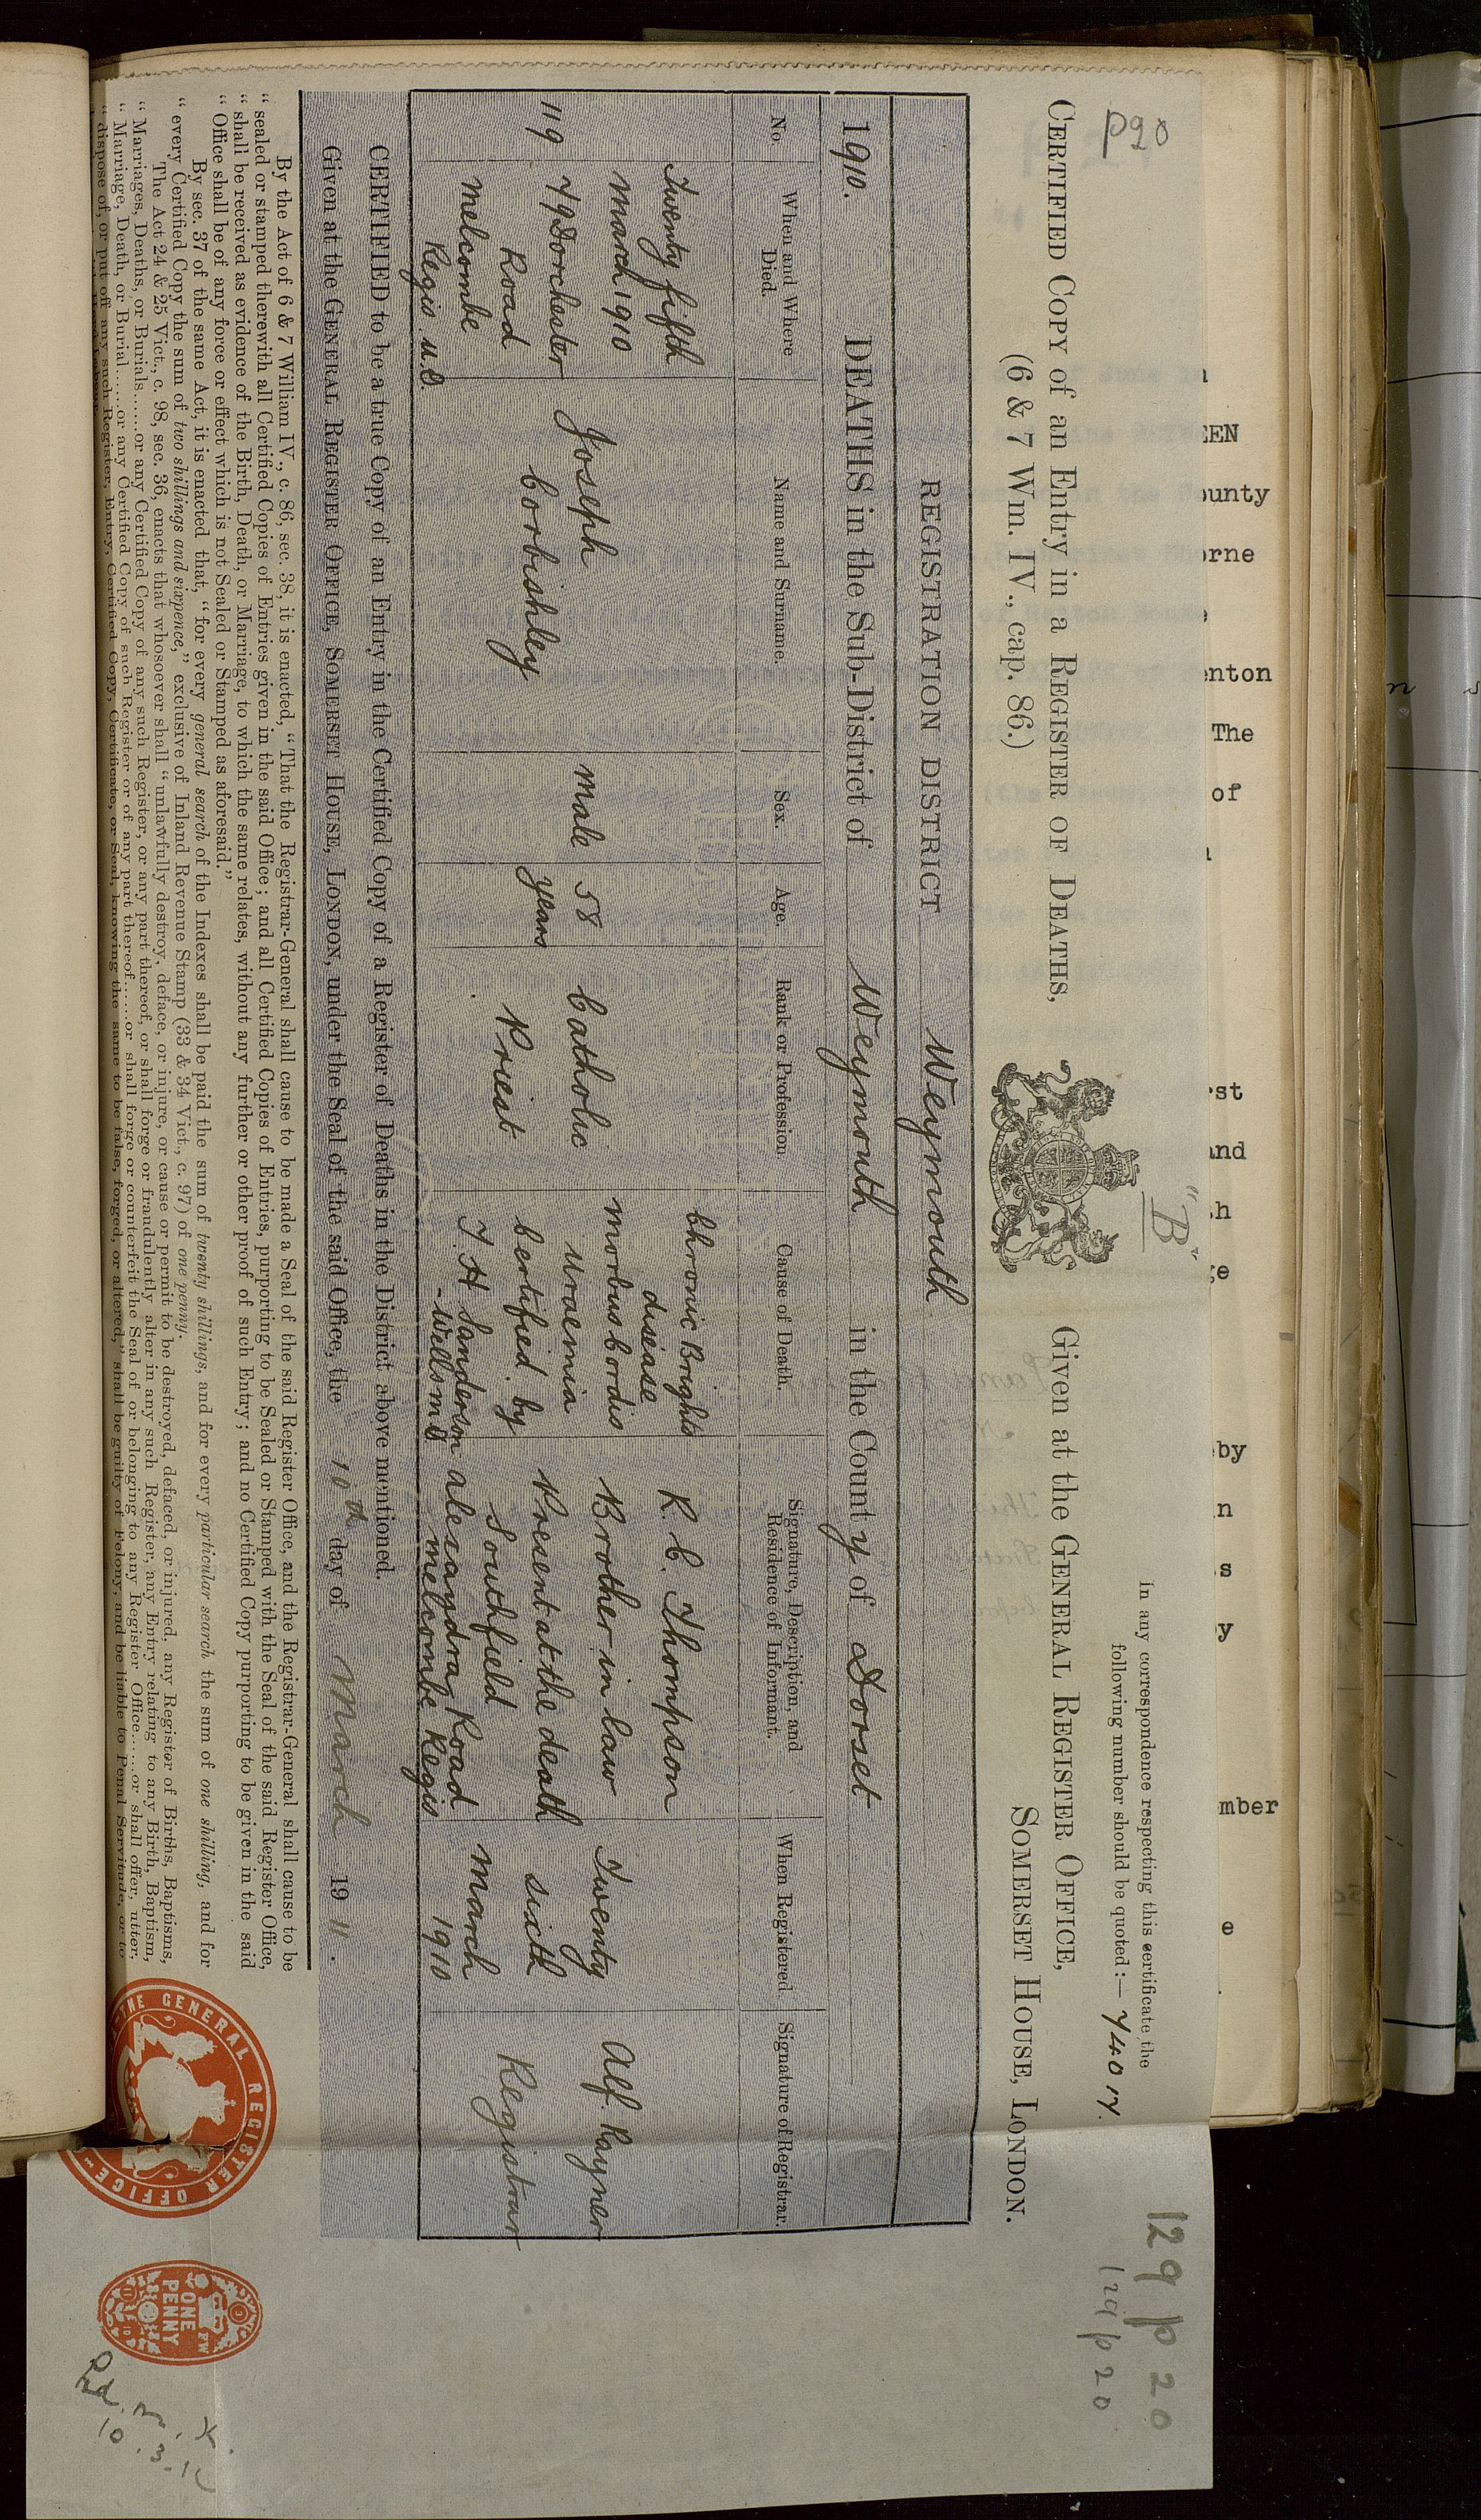 p20
"B"
In any correspondence respecting this certificate the
following number should be quoted:— 7401Y.
CERTIFIED COPY of an Entry in a REGISTER OF DEATHS,
(6 & 7 Wm. IV., cap. 86.)
Given at the GENERAL REGISTER OFFICE,
SOMERSET HOUSE, LONDON.
129 p 20
129 p 20
REGISTRATION DISTRICT Weymouth
1910. DEATHS in the Sub-District of Weymouth in the County of Dorset
No.
When and Where
Died.
Name and Surname.
Sex.
Age.
Rank or Profession.
Cause of Death.
Signature, Description, and
Residence of Informant.
When Registered.
Signature of Registrar.
119
Twenty fifth
March 1910
79 Dorchester
Road
Melcombe
Regis u.D.
Joseph
Corbishley
Male
58
years
Catholic
Priest
Chronic Brights
disease
Morbus Cordis
Uraemia
Certified by
J. H. Sanderson
-Wells MB
R. C. Thompson
Brother in law
Present at the death
Southfield
Alexandra Road
Melcombe Regis
Twenty
sixth
March
1910
Alf. Rayner
Registrar
CERTIFIED to be a true Copy of an Entry in the Certified Copy of a Register of Deaths in the District above mentioned.
Given at the GENERAL REGISTER OFFICE, SOMERSET HOUSE, LONDON, under the Seal of the said Office, the 10th day of March 1911.
By the Act of 6 & 7 William IV., c. 86, sec. 38, it is enacted, "That the Registrar-General shall cause to be made a Seal of the said Register Office, and the Registrar-General shall cause to be
"sealed or stamped therewith all Certified Copies of Entries given in the said Office; and all Certified Copies of Entries, purporting to be Sealed or Stamped with the Seal of the said Register Office,
"shall be received as evidence of the Birth, Death, or Marriage, to which the same relates, without any further or other proof of such Entry; and no Certified Copy purporting to be given in the said
"Office shall be of any force or effect which is not Sealed or Stamped as aforesaid."
By sec. 37 of the same Act, it is enacted that, "for every general search of the Indexes shall be paid the sum of twenty shillings, and for every particular search the sum of one shilling, and for
"every Certified Copy the sum of two shillings and sixpence," exclusive of Inland Revenue Stamp (33 & 34 Vict., c. 97) of one penny.
The Act 24 & 25 Vict., c. 98, sec. 36, enacts that whosoever shall "unlawfully destroy, deface, or injure, or cause or permit to be destroyed, defaced, or injured, any Register of Births, Baptisms,
"Marriages, Deaths, or Burials......or any Certified Copy of any such Register, or any part thereof, or shall forge or fraudulently alter in any such Register, any Entry relating to any Birth, Baptism,
"Marriage, Death, or Burial......or any Certified Copy of such Register or of any part thereof......or shall forge or counterfeit the Seal of or belonging to any Register Office......or shall offer, utter,
"dispose of, or put off any such Register, Entry, Certified Copy, Certificate, or Seal, knowing the same to be false, forged, or altered," shall be guilty of Felony, and be liable to Penal Servitude, or to
THE GENERAL REGISTER OFFICE
ONE
PENNY
EEN
ounty
orne
enton
The
of
rst
and
h
ge
by
in
s
by
mber
e